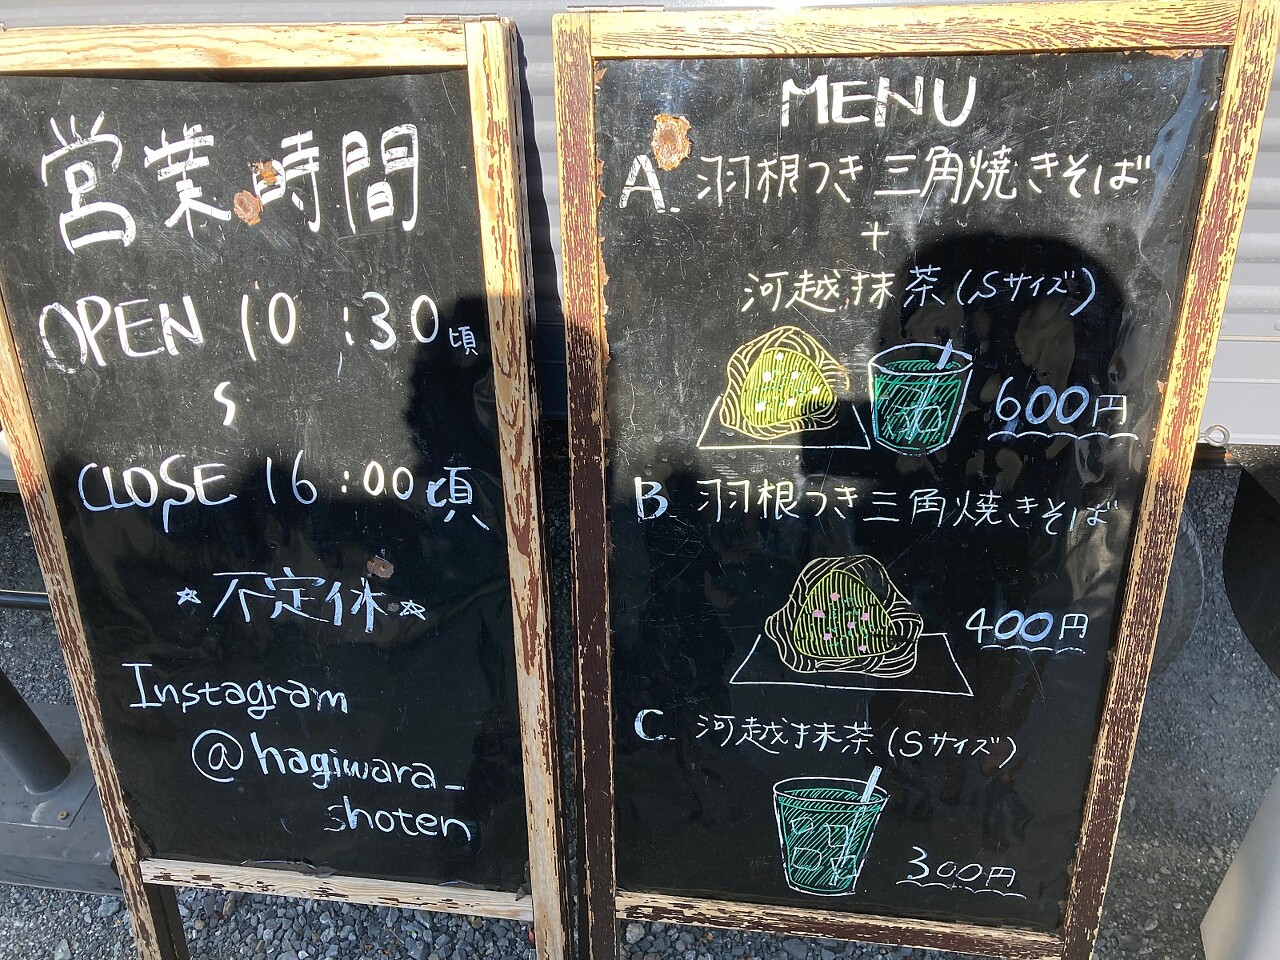 営業時間
OPEN 10:30頃
〜
CLOSE 16:00頃
☆不定休☆
Instagram
@hagiwara_
shoten
MENU
A. 羽根つき三角焼きそば
+
河越抹茶(Sサイズ)
600円
B. 羽根つき三角焼きそば
400円
C. 河越抹茶(Sサイズ)
300円